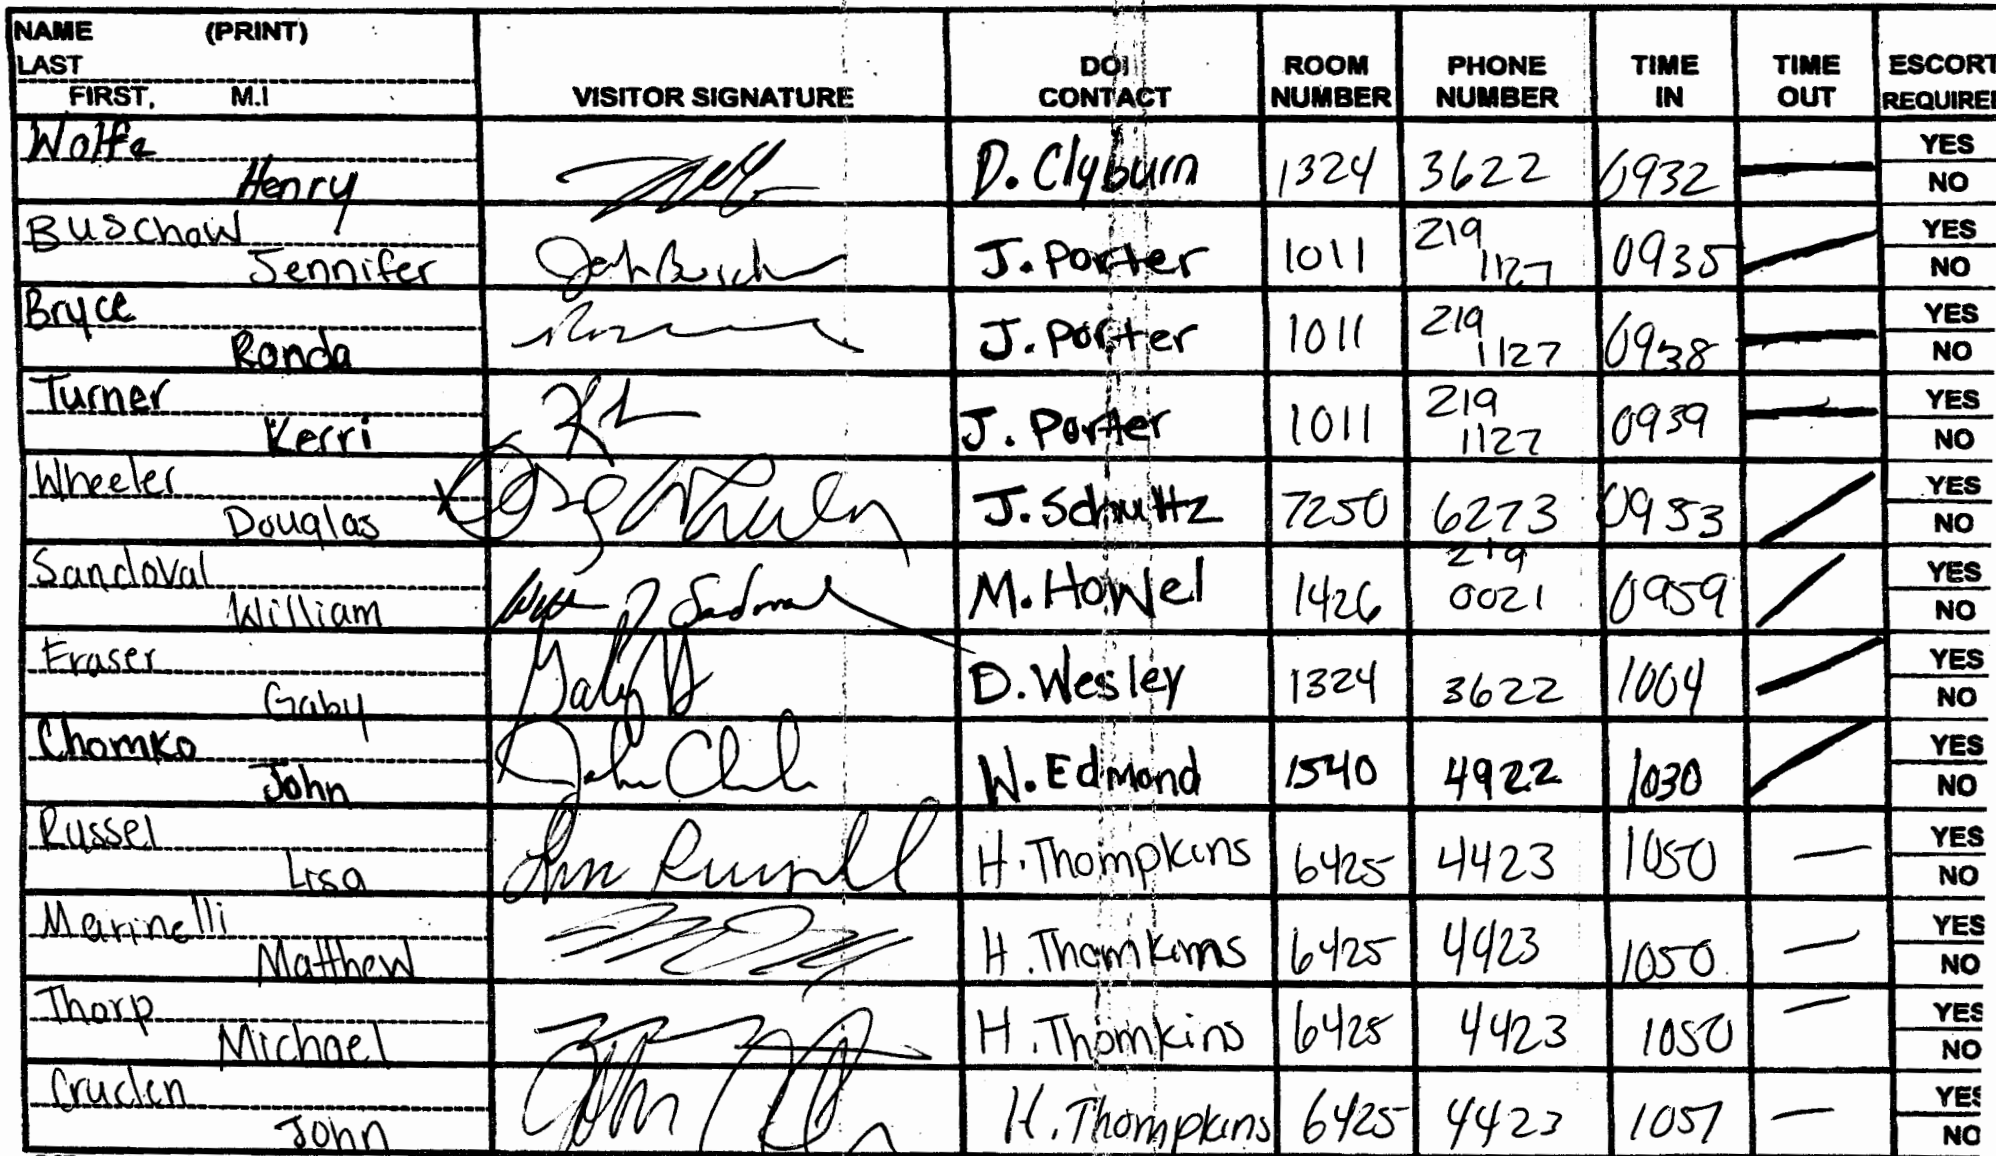 NAME (PRINT)
LAST
FIRST, M.I
VISITOR SIGNATURE
DOI CONTACT
ROOM NUMBER
PHONE NUMBER
TIME IN
TIME OUT
ESCORT REQUIRE
Wolfe
Henry
D. Clyburn 1324 3622 0932 YES
NO
Buschow
Jennifer
J. Porter 1011 219 1127 0935 YES
NO
Bryce
Ronda
J. Porter 1011 219 1127 0938 YES
NO
Turner
Kerri
J. Porter 1011 219 1127 0939 YES
NO
Wheeler
Douglas
J. Schultz 7250 6273 0953 YES
NO
Sandoval
William
M. Howel 1426 219 0021 0959 YES
NO
Fraser
Gaby
D. Wesley 1324 3622 1004 YES
NO
Chomko
John
John
W. Edmond 1540 4922 1030 YES
NO
Russel
Lisa
H. Thompkins 6425 4423 1050 YES
NO
Marinelli
Matthew
H. Thomkins 6425 4423 1050 YES
NO
Thorp
Michael
H. Thomkins 6425 4423 1050 YES
NO
Cruden
John
H. Thompkins 6425 4423 1051 YES
NO